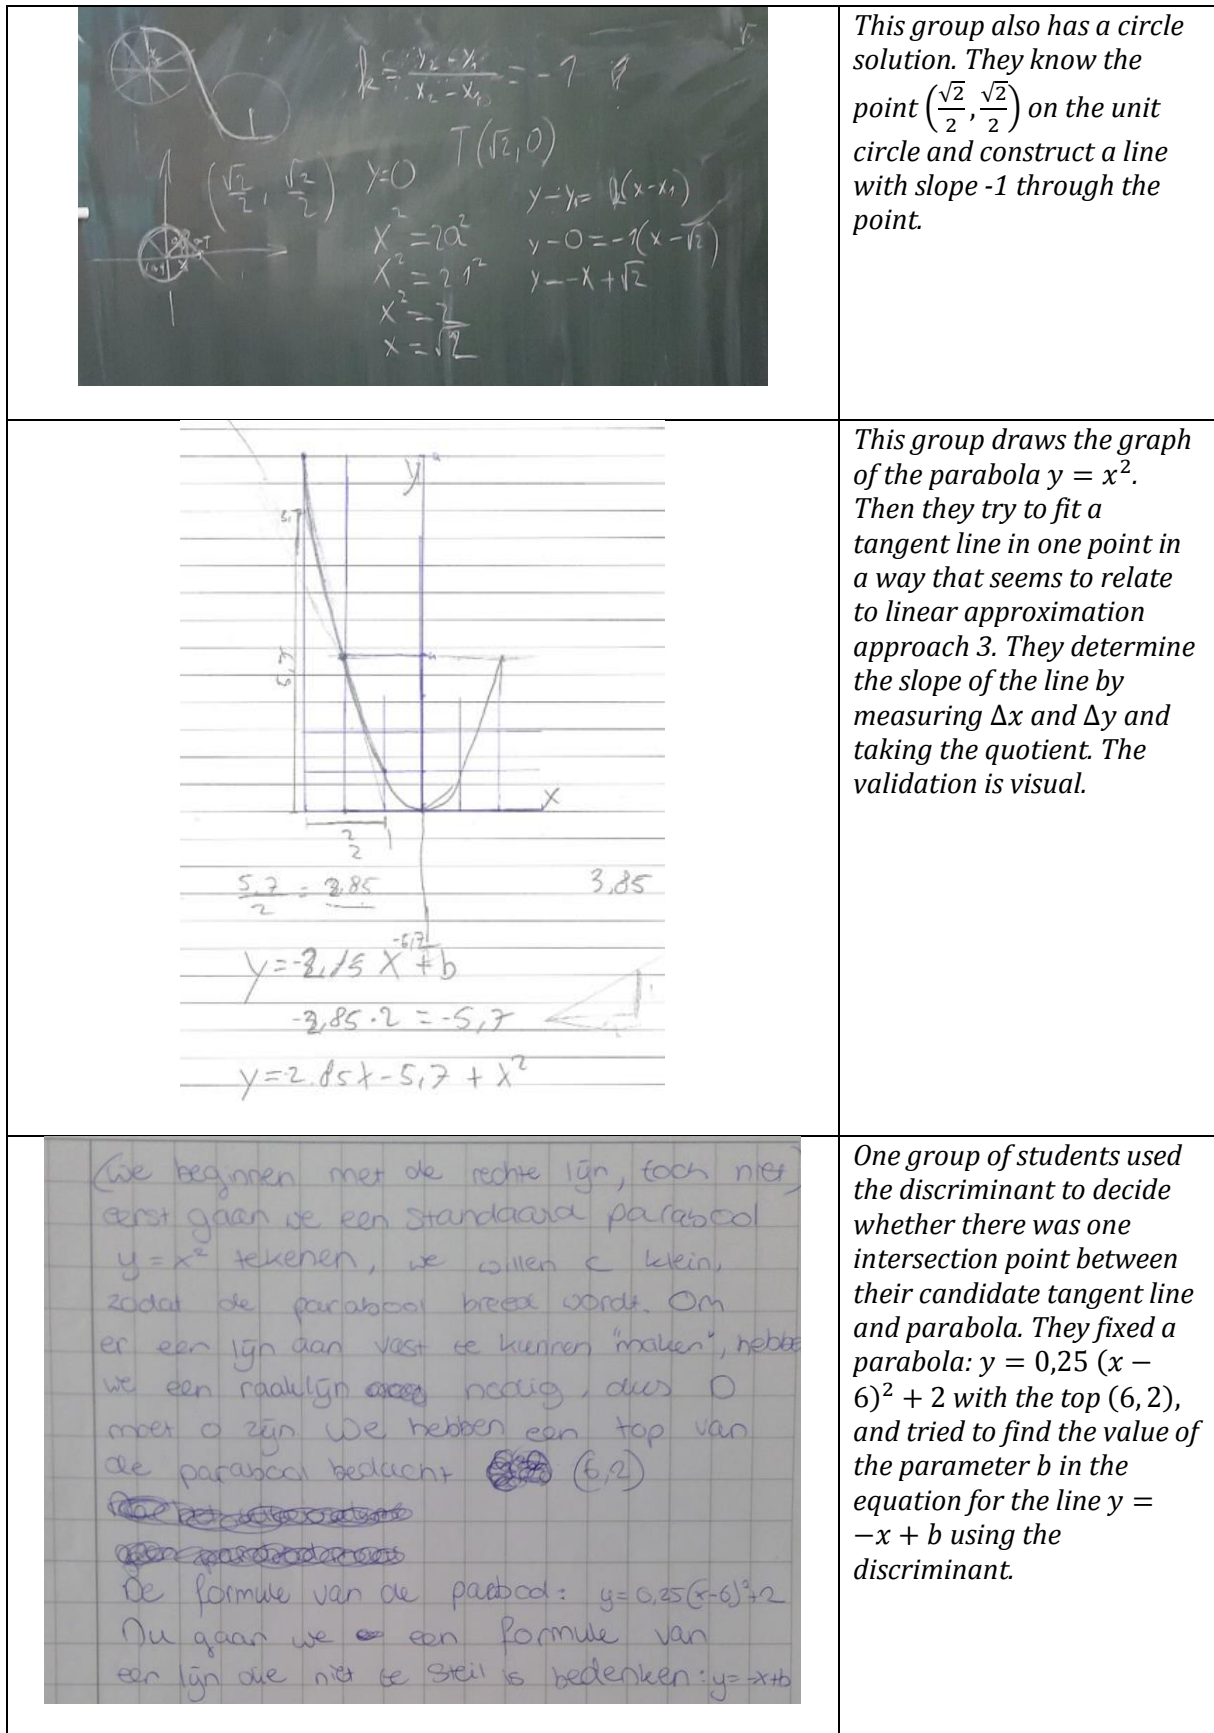 k = y₂ - y₁ / x₂ - x₁ = -1
T(√2, 0)
(√2/2, √2/2)
y=0
x² = 2a²
x² = 2 1²
x² = 2
x = √2
y - y₁ = k(x - x₁)
y - 0 = -1(x - √2)
y = -x + √2
This group also has a circle
solution. They know the
point (√2/2, √2/2) on the unit
circle and construct a line
with slope -1 through the
point.
y
5,7
x
2
2
5,7/2 = 2,85
3,85
-5,7
+ b
-2,85 · 2 = -5,7
y = 2.85x - 5,7 + x²
This group draws the graph
of the parabola y = x².
Then they try to fit a
tangent line in one point in
a way that seems to relate
to linear approximation
approach 3. They determine
the slope of the line by
measuring Δx and Δy and
taking the quotient. The
validation is visual.
(we beginnen met de rechte lijn, toch niet)
eerst gaan we een standaard parabool
y = x² tekenen, we willen c klein,
zodat de parabool breed wordt. Om
er een lijn aan vast te kunnen "maken", hebbe
we een raaklijn nodig, dus D
moet 0 zijn We hebben een top van
de parabool bedacht (6,2)
De formule van de parbool: y = 0,25(x-6)²+2
Nu gaan we een formule van
een lijn die niet te steil is bedenken: y = -x+b
One group of students used
the discriminant to decide
whether there was one
intersection point between
their candidate tangent line
and parabola. They fixed a
parabola: y = 0,25 (x −
6)² + 2 with the top (6, 2),
and tried to find the value of
the parameter b in the
equation for the line y =
−x + b using the
discriminant.